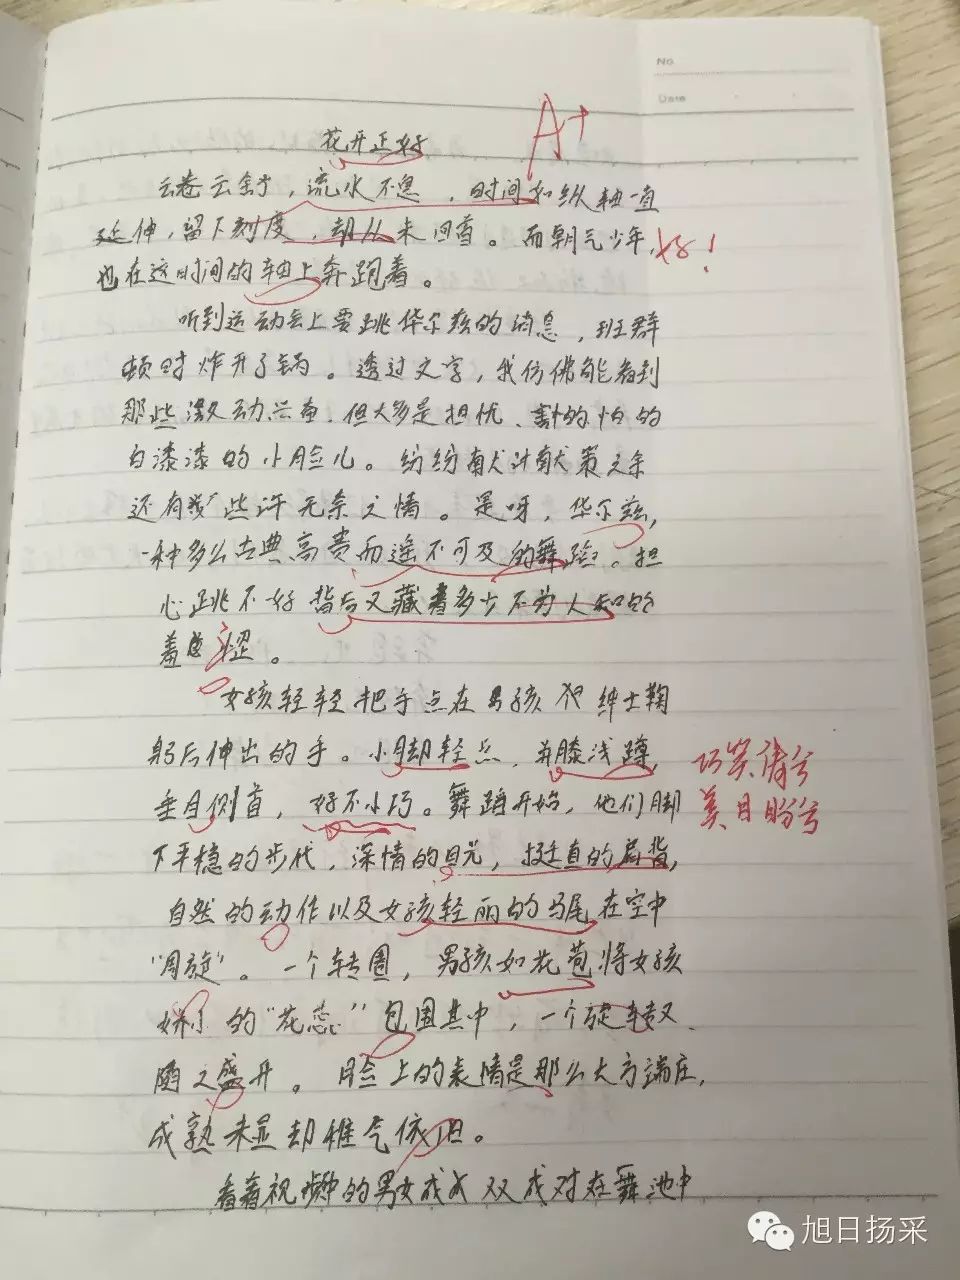 No
Date
A+
花开正好
云卷云舒，流水不息，时间如纵轴一直
延伸，留下刻度，却从未回首。而朝气少年，
好！
也在这时间的轴上奔跑着。
听到运动会上要跳华尔兹的消息，班群
顿时炸开了锅。透过文字，我仿佛能看到
那些激动、兴奋，但大多是担忧、害怕的
白漆漆的小脸儿。纷纷献计献策之余
还有些许无奈之情。是呀，华尔兹，
一种多么古典、高贵而遥不可及的舞蹈。担
心跳不好背后又藏着多少不为人知的
羞涩。
女孩轻轻把手点在男孩很绅士鞠
躬后伸出的手。小脚轻点，并膝浅蹲，
巧笑倩兮
美目盼兮
垂目侧首，好不小巧。舞蹈开始，他们脚
下平稳的步伐，深情的目光，挺直的肩背，
自然的动作以及女孩轻丽的马尾在空中
“周旋”。一个转圈，男孩如花苞将女孩
的“花蕊”包围其中，一个旋转又
随之盛开。脸上的表情是那么大方端庄，
成熟未显却稚气依旧。
看着视频中的男女成双成对在舞池中
旭日扬采